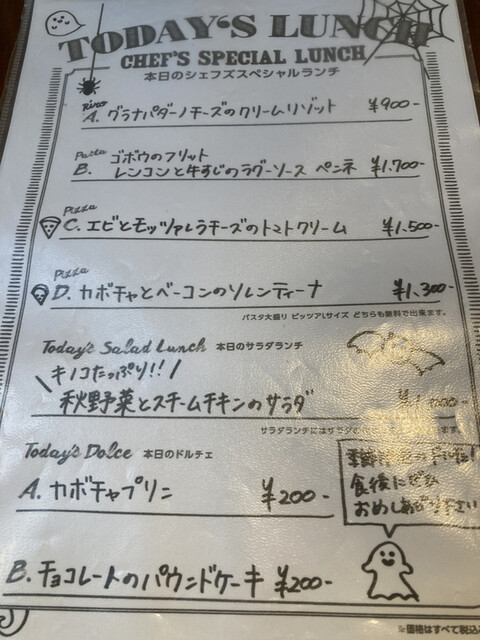 TODAY'S LUNCH
CHEF'S SPECIAL LUNCH
本日のシェフズスペシャルランチ
A. グラナパダーノチーズのクリームリゾット ¥900-
Pasta
ゴボウのフリット
B. レンコンと牛すじのラグーソース ペンネ ¥1,700-
Pizza
C. エビとモッツァレラチーズのトマトクリーム ¥1,500-
Pizza
D. カボチャとベーコンのソレンティーナ ¥1,300-
パスタ大盛り ピッツァLサイズ どちらも無料で出来ます。
Today's Salad Lunch 本日のサラダランチ
キノコたっぷり!!
秋野菜とスチームチキンのサラダ
サラダランチには
Today's Dolce 本日のドルチェ
A. カボチャプリン ¥200-
食後にぜひ
おめしあがり下さい
B. チョコレートのパウンドケーキ ¥200-
※価格はすべて税込